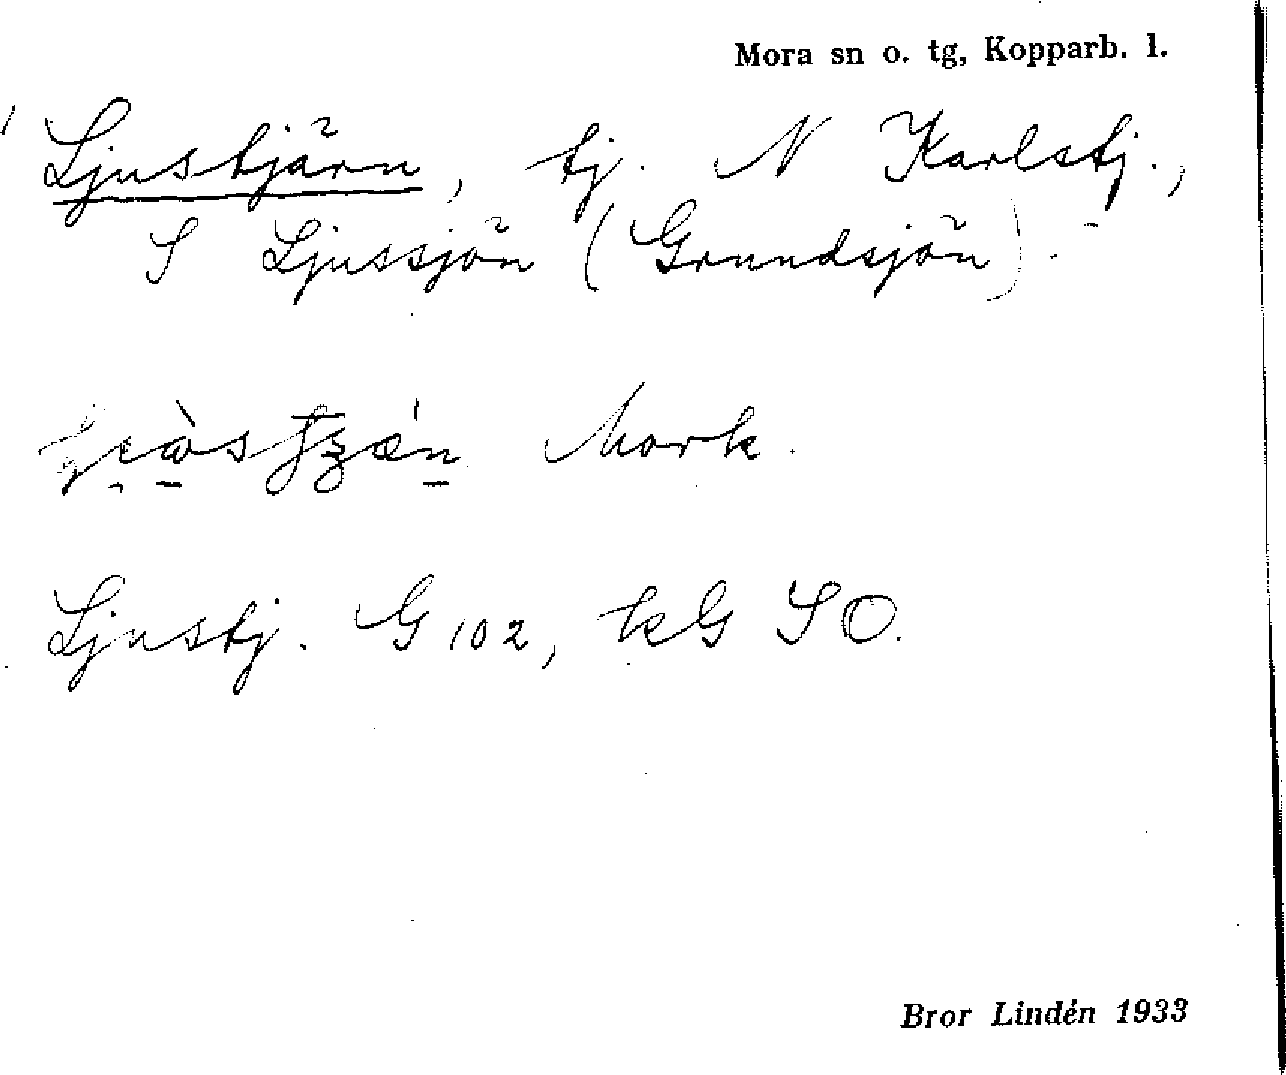 Mora sn o. tg, Kopparb. l.
Ljustjärn, tj. N Karlstj.,
S Ljussjön (Grundsjön).
Mork.
Ljustj. G 102, kG SO.
Bror Lindén 1933